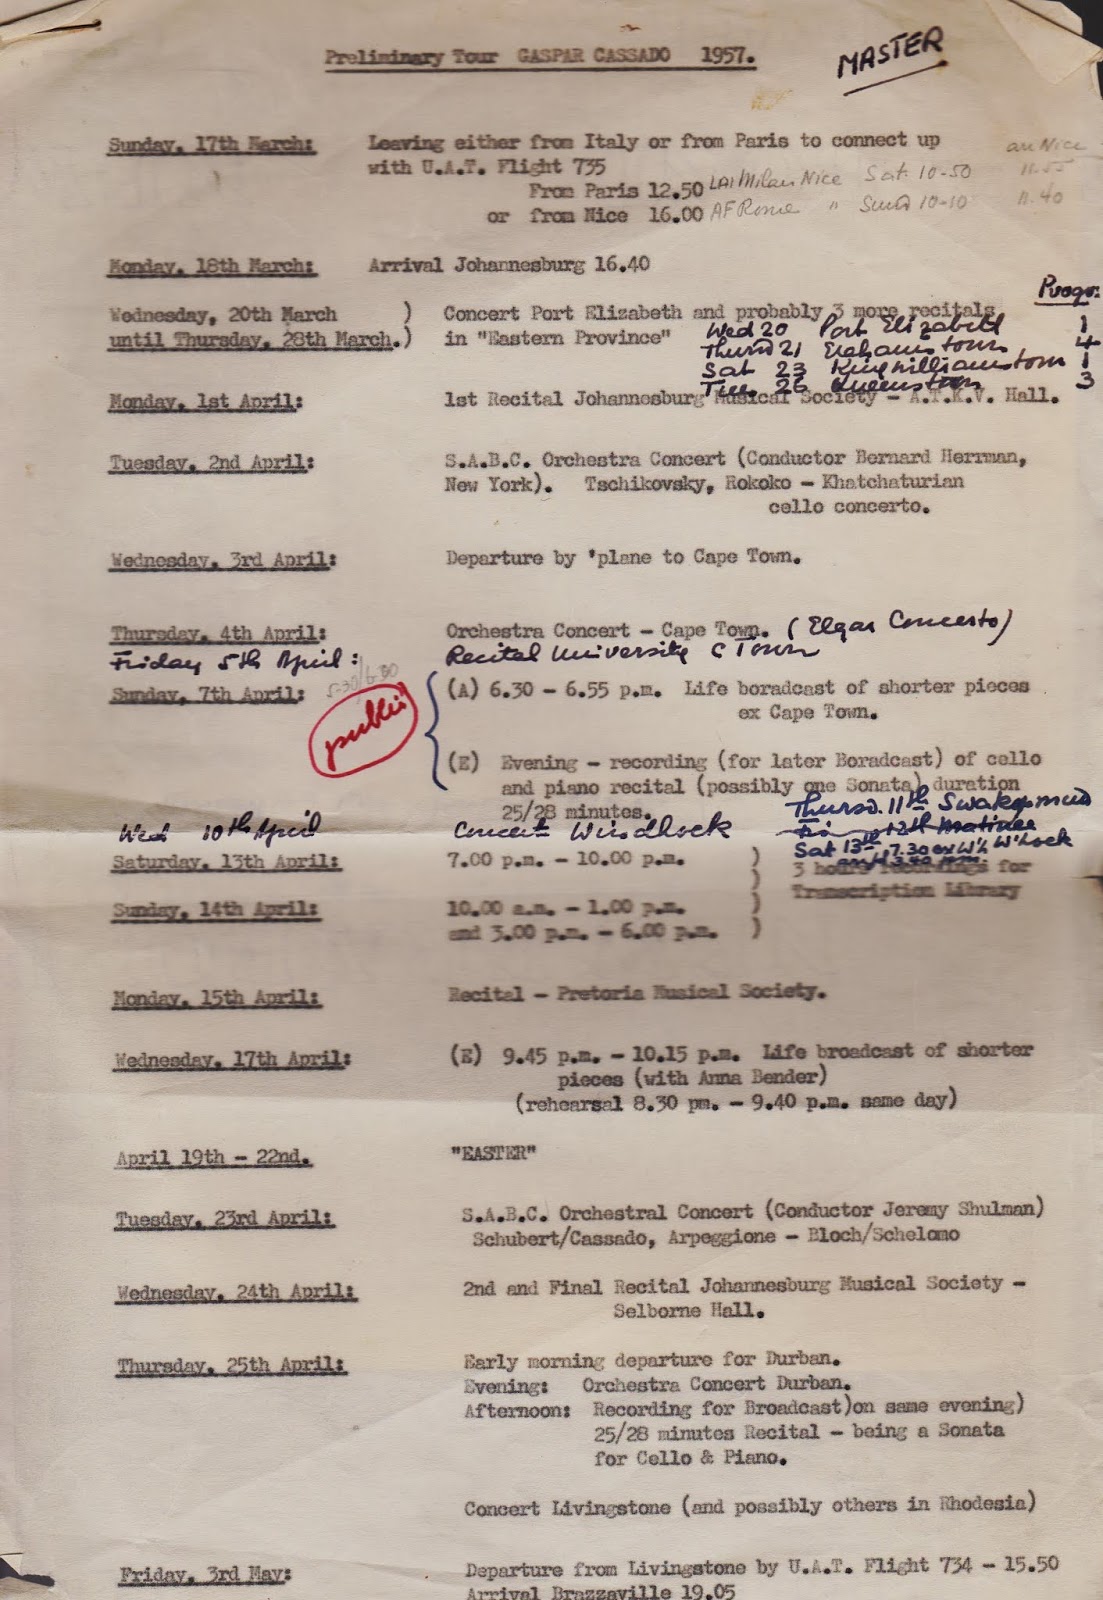 Preliminary Tour GASPAR CASSADO 1957.
MASTER
Sunday, 17th March: Leaving either from Italy or from Paris to connect up
with U.A.T. Flight 735
arr Nice
From Paris 12.50 LAI Milan Nice Sat. 10-50 11.55
or from Nice 16.00 AF Rome " Sund 10-10 11.40
Monday, 18th March: Arrival Johannesburg 16.40
Progr:
Wednesday, 20th March ) Concert Port Elizabeth and probably 3 more recitals
until Thursday, 28th March.) in "Eastern Province"
Wed 20 Port Elizabeth 1
Thursd 21 Grahamstown 4
Sat 23 Kingwilliamstown 1
Tues 26 Queenstown 3
Monday, 1st April: 1st Recital Johannesburg Musical Society - A.T.K.V. Hall.
Tuesday, 2nd April: S.A.B.C. Orchestra Concert (Conductor Bernard Herrman,
New York). Tschikovsky, Rokoko - Khatchaturian
cello concerto.
Wednesday, 3rd April: Departure by 'plane to Cape Town.
Thursday, 4th April: Orchestra Concert - Cape Town. (Elgar Concerto)
Friday 5th April: Recital University C Town
5.30/6.30
Sunday, 7th April: (A) 6.30 - 6.55 p.m. Life boradcast of shorter pieces
ex Cape Town.
public
(E) Evening - recording (for later Boradcast) of cello
and piano recital (possibly one Sonata) duration
25/28 minutes.
Wed 10th April Concert Windhoek
Thursd. 11th Swakopmund
Fri 12th Matinee
Sat 13th, 7.30 ex W'h W'hoek
arr 3.40 pm.
Saturday, 13th April: 7.00 p.m. - 10.00 p.m. )
) 3 hours recordings for
) Transcription Library
Sunday, 14th April: 10.00 a.m. - 1.00 p.m. )
and 3.00 p.m. - 6.00 p.m. )
Monday, 15th April: Recital - Pretoria Musical Society.
Wednesday, 17th April: (E) 9.45 p.m. - 10.15 p.m. Life broadcast of shorter
pieces (with Anna Bender)
(rehearsal 8.30 pm. - 9.40 p.m. same day)
April 19th - 22nd. "EASTER"
Tuesday, 23rd April: S.A.B.C. Orchestral Concert (Conductor Jeremy Shulman)
Schubert/Cassado, Arpeggione - Bloch/Schelomo
Wednesday, 24th April: 2nd and Final Recital Johannesburg Musical Society -
Selborne Hall.
Thursday, 25th April: Early morning departure for Durban.
Evening: Orchestra Concert Durban.
Afternoon: Recording for Broadcast)on same evening)
25/28 minutes Recital - being a Sonata
for Cello & Piano.
Concert Livingstone (and possibly others in Rhodesia)
Friday, 3rd May: Departure from Livingstone by U.A.T. Flight 734 - 15.50
Arrival Brazzaville 19.05